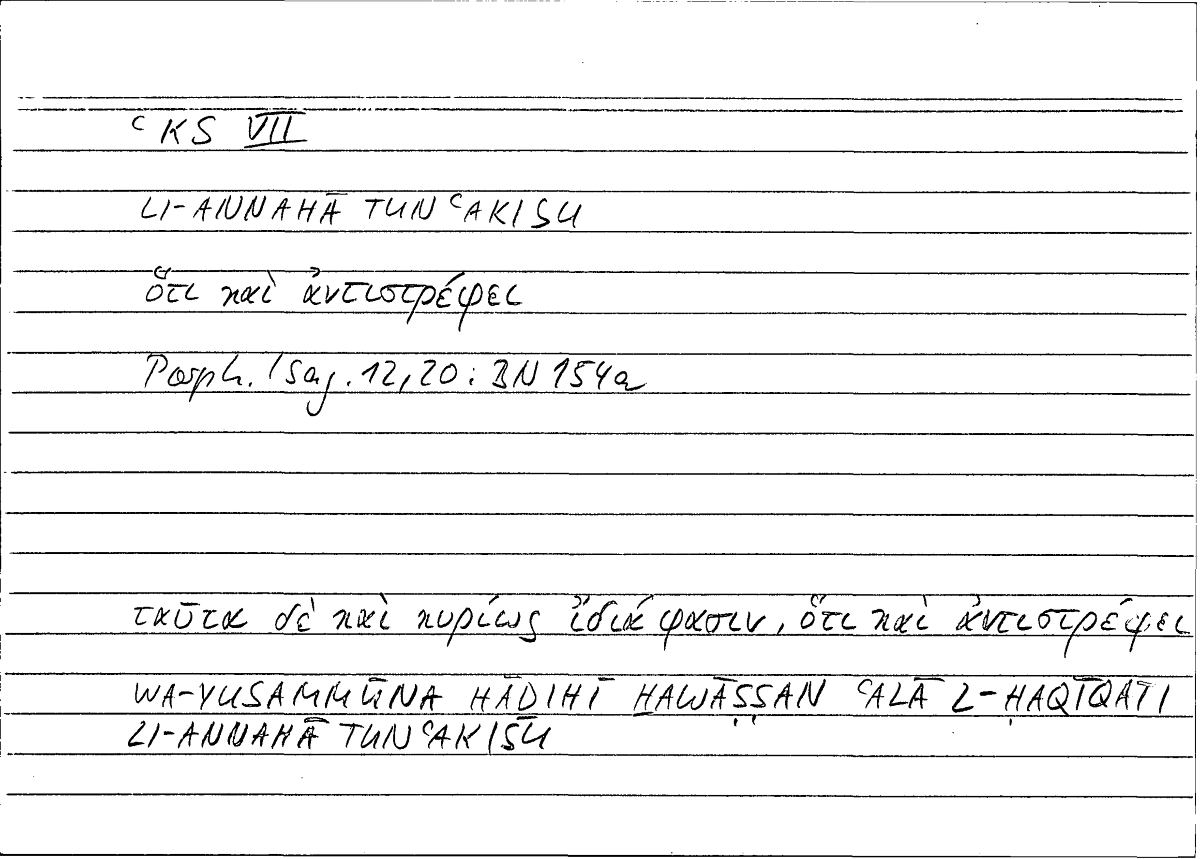 ʿKS VII
LI-ANNAHĀ TUNʿAKISU
ὅτι καὶ ἀντιστρέφει
Porph. Isag. 12,20 : BN 154a
ταῦτα δὲ καὶ κυρίως ἴδιά φασιν, ὅτι καὶ ἀντιστρέφει
WA-YUSAMMŪNA HĀḎIHĪ ḪAWĀṢṢAN ʿALĀ L-ḤAQĪQATI
LI-ANNAHĀ TUNʿAKISU